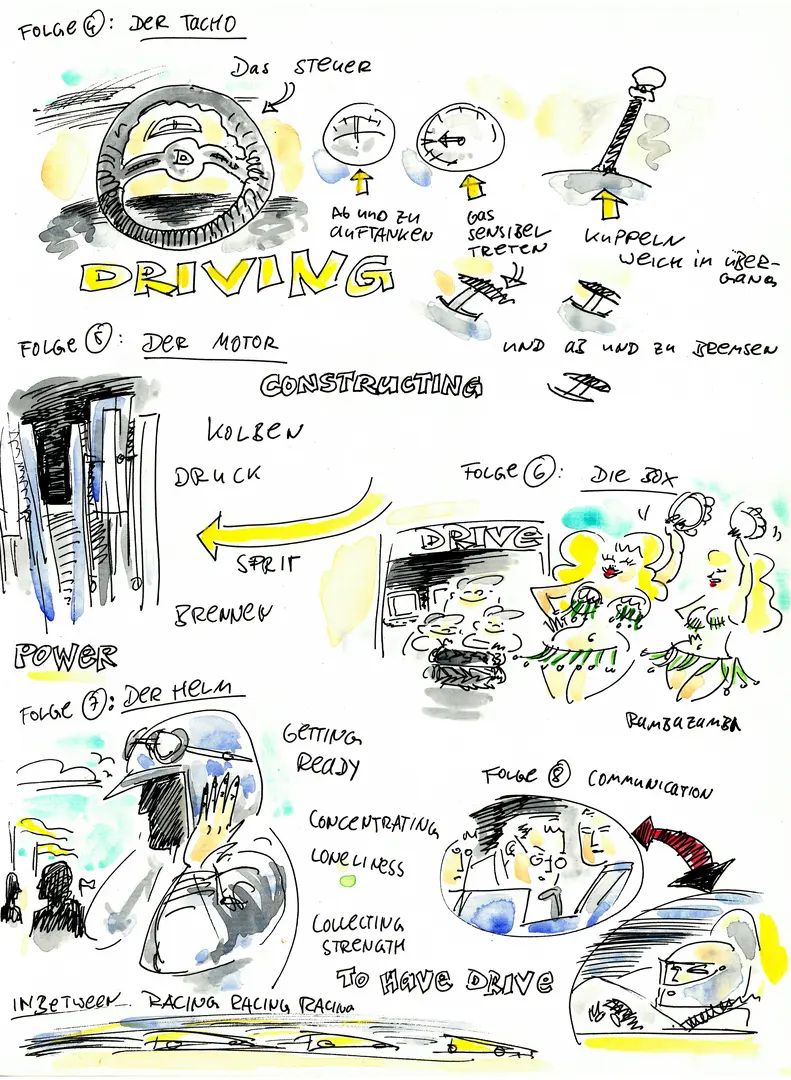 FOLGE ④: DER TACHO
Das STEUER
D
AB UND ZU
AUFTANKEN
GAS
SENSIBEL
TRETEN
KUPPELN
WEICH IM ÜBER-
GANG
DRIVING
UND AB UND ZU BREMSEN
FOLGE ⑤: DER MOTOR
CONSTRUCTING
KOLBEN
DRUCK
SPRIT
BRENNEN
POWER
FOLGE ⑥: DIE BOX
DRIVE
RAMBAZAMBA
FOLGE ⑦: DER HELM
GETTING
READY
CONCENTRATING
LONELINESS
COLLECTING
STRENGTH
FOLGE ⑧ COMMUNICATION
TO HAVE DRIVE
INBETWEEN RACING RACING RACING